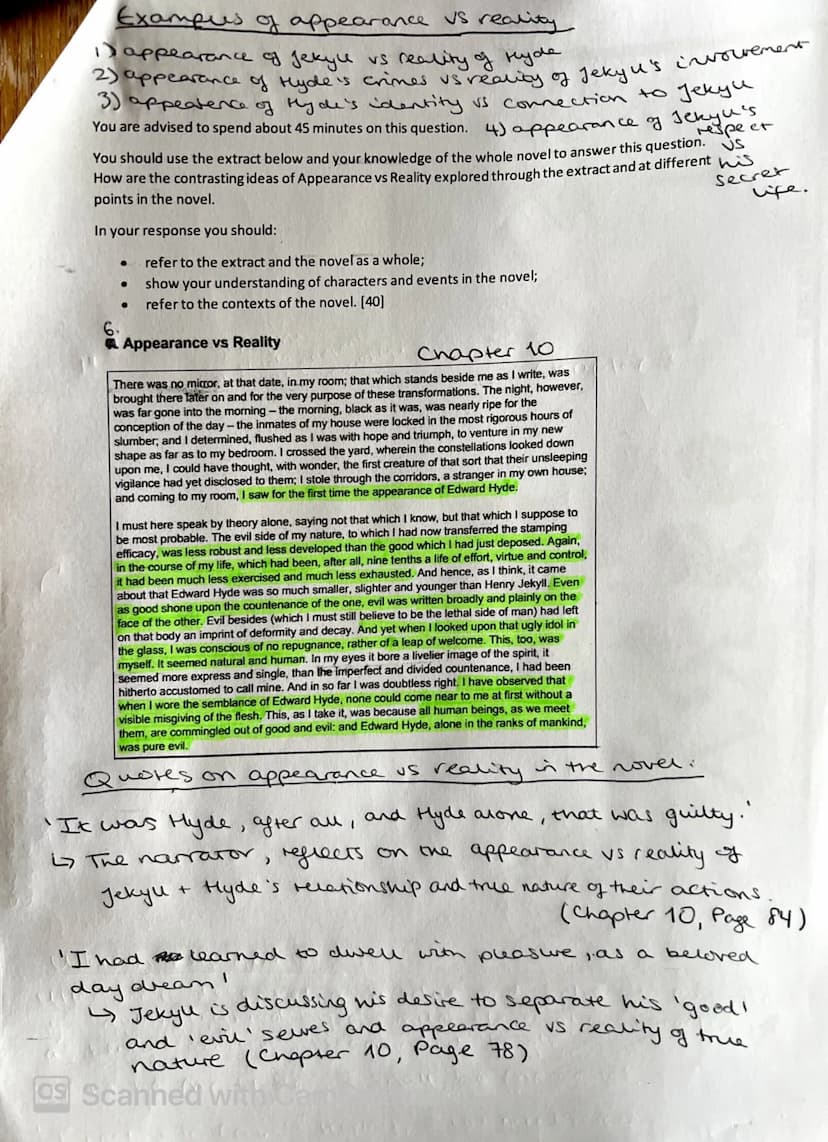 Examples of appearance vs reality
1) appearance of Jekyll vs reality of Hyde
2) appearance of Hyde's crimes vs reality of Jekyll's involvement
3) appearence of Hyde's identity vs connection to Jekyll
You are advised to spend about 45 minutes on this question. 4) appearance of Jekyll's
respect
You should use the extract below and your knowledge of the whole novel to answer this question. vs
How are the contrasting ideas of Appearance vs Reality explored through the extract and at different his
points in the novel. secret
life.
In your response you should:
• refer to the extract and the novel as a whole;
• show your understanding of characters and events in the novel;
• refer to the contexts of the novel. [40]
6.
Appearance vs Reality
Chapter 10
There was no mirror, at that date, in my room; that which stands beside me as I write, was
brought there later on and for the very purpose of these transformations. The night, however,
was far gone into the morning – the morning, black as it was, was nearly ripe for the
conception of the day – the inmates of my house were locked in the most rigorous hours of
slumber; and I determined, flushed as I was with hope and triumph, to venture in my new
shape as far as to my bedroom. I crossed the yard, wherein the constellations looked down
upon me, I could have thought, with wonder, the first creature of that sort that their unsleeping
vigilance had yet disclosed to them; I stole through the corridors, a stranger in my own house;
and coming to my room, I saw for the first time the appearance of Edward Hyde.
I must here speak by theory alone, saying not that which I know, but that which I suppose to
be most probable. The evil side of my nature, to which I had now transferred the stamping
efficacy, was less robust and less developed than the good which I had just deposed. Again,
in the course of my life, which had been, after all, nine tenths a life of effort, virtue and control,
it had been much less exercised and much less exhausted. And hence, as I think, it came
about that Edward Hyde was so much smaller, slighter and younger than Henry Jekyll. Even
as good shone upon the countenance of the one, evil was written broadly and plainly on the
face of the other. Evil besides (which I must still believe to be the lethal side of man) had left
on that body an imprint of deformity and decay. And yet when I looked upon that ugly idol in
the glass, I was conscious of no repugnance, rather of a leap of welcome. This, too, was
myself. It seemed natural and human. In my eyes it bore a livelier image of the spirit, it
seemed more express and single, than the imperfect and divided countenance, I had been
hitherto accustomed to call mine. And in so far I was doubtless right. I have observed that
when I wore the semblance of Edward Hyde, none could come near to me at first without a
visible misgiving of the flesh. This, as I take it, was because all human beings, as we meet
them, are commingled out of good and evil: and Edward Hyde, alone in the ranks of mankind,
was pure evil.
Quotes on appearance vs reality in the novel:
'It was Hyde, after all, and Hyde alone, that was guilty.'
↳ The narrator, reflects on the appearance vs reality of
Jekyll + Hyde's relationship and true nature of their actions.
(Chapter 10, Page 84)
'I had learned to dwell with pleasure, as a beloved
day dream'
↳ Jekyll is discussing his desire to separate his 'good'
and 'evil' selves and appearance vs reality of true
nature (Chapter 10, Page 78)
CS Scanned with